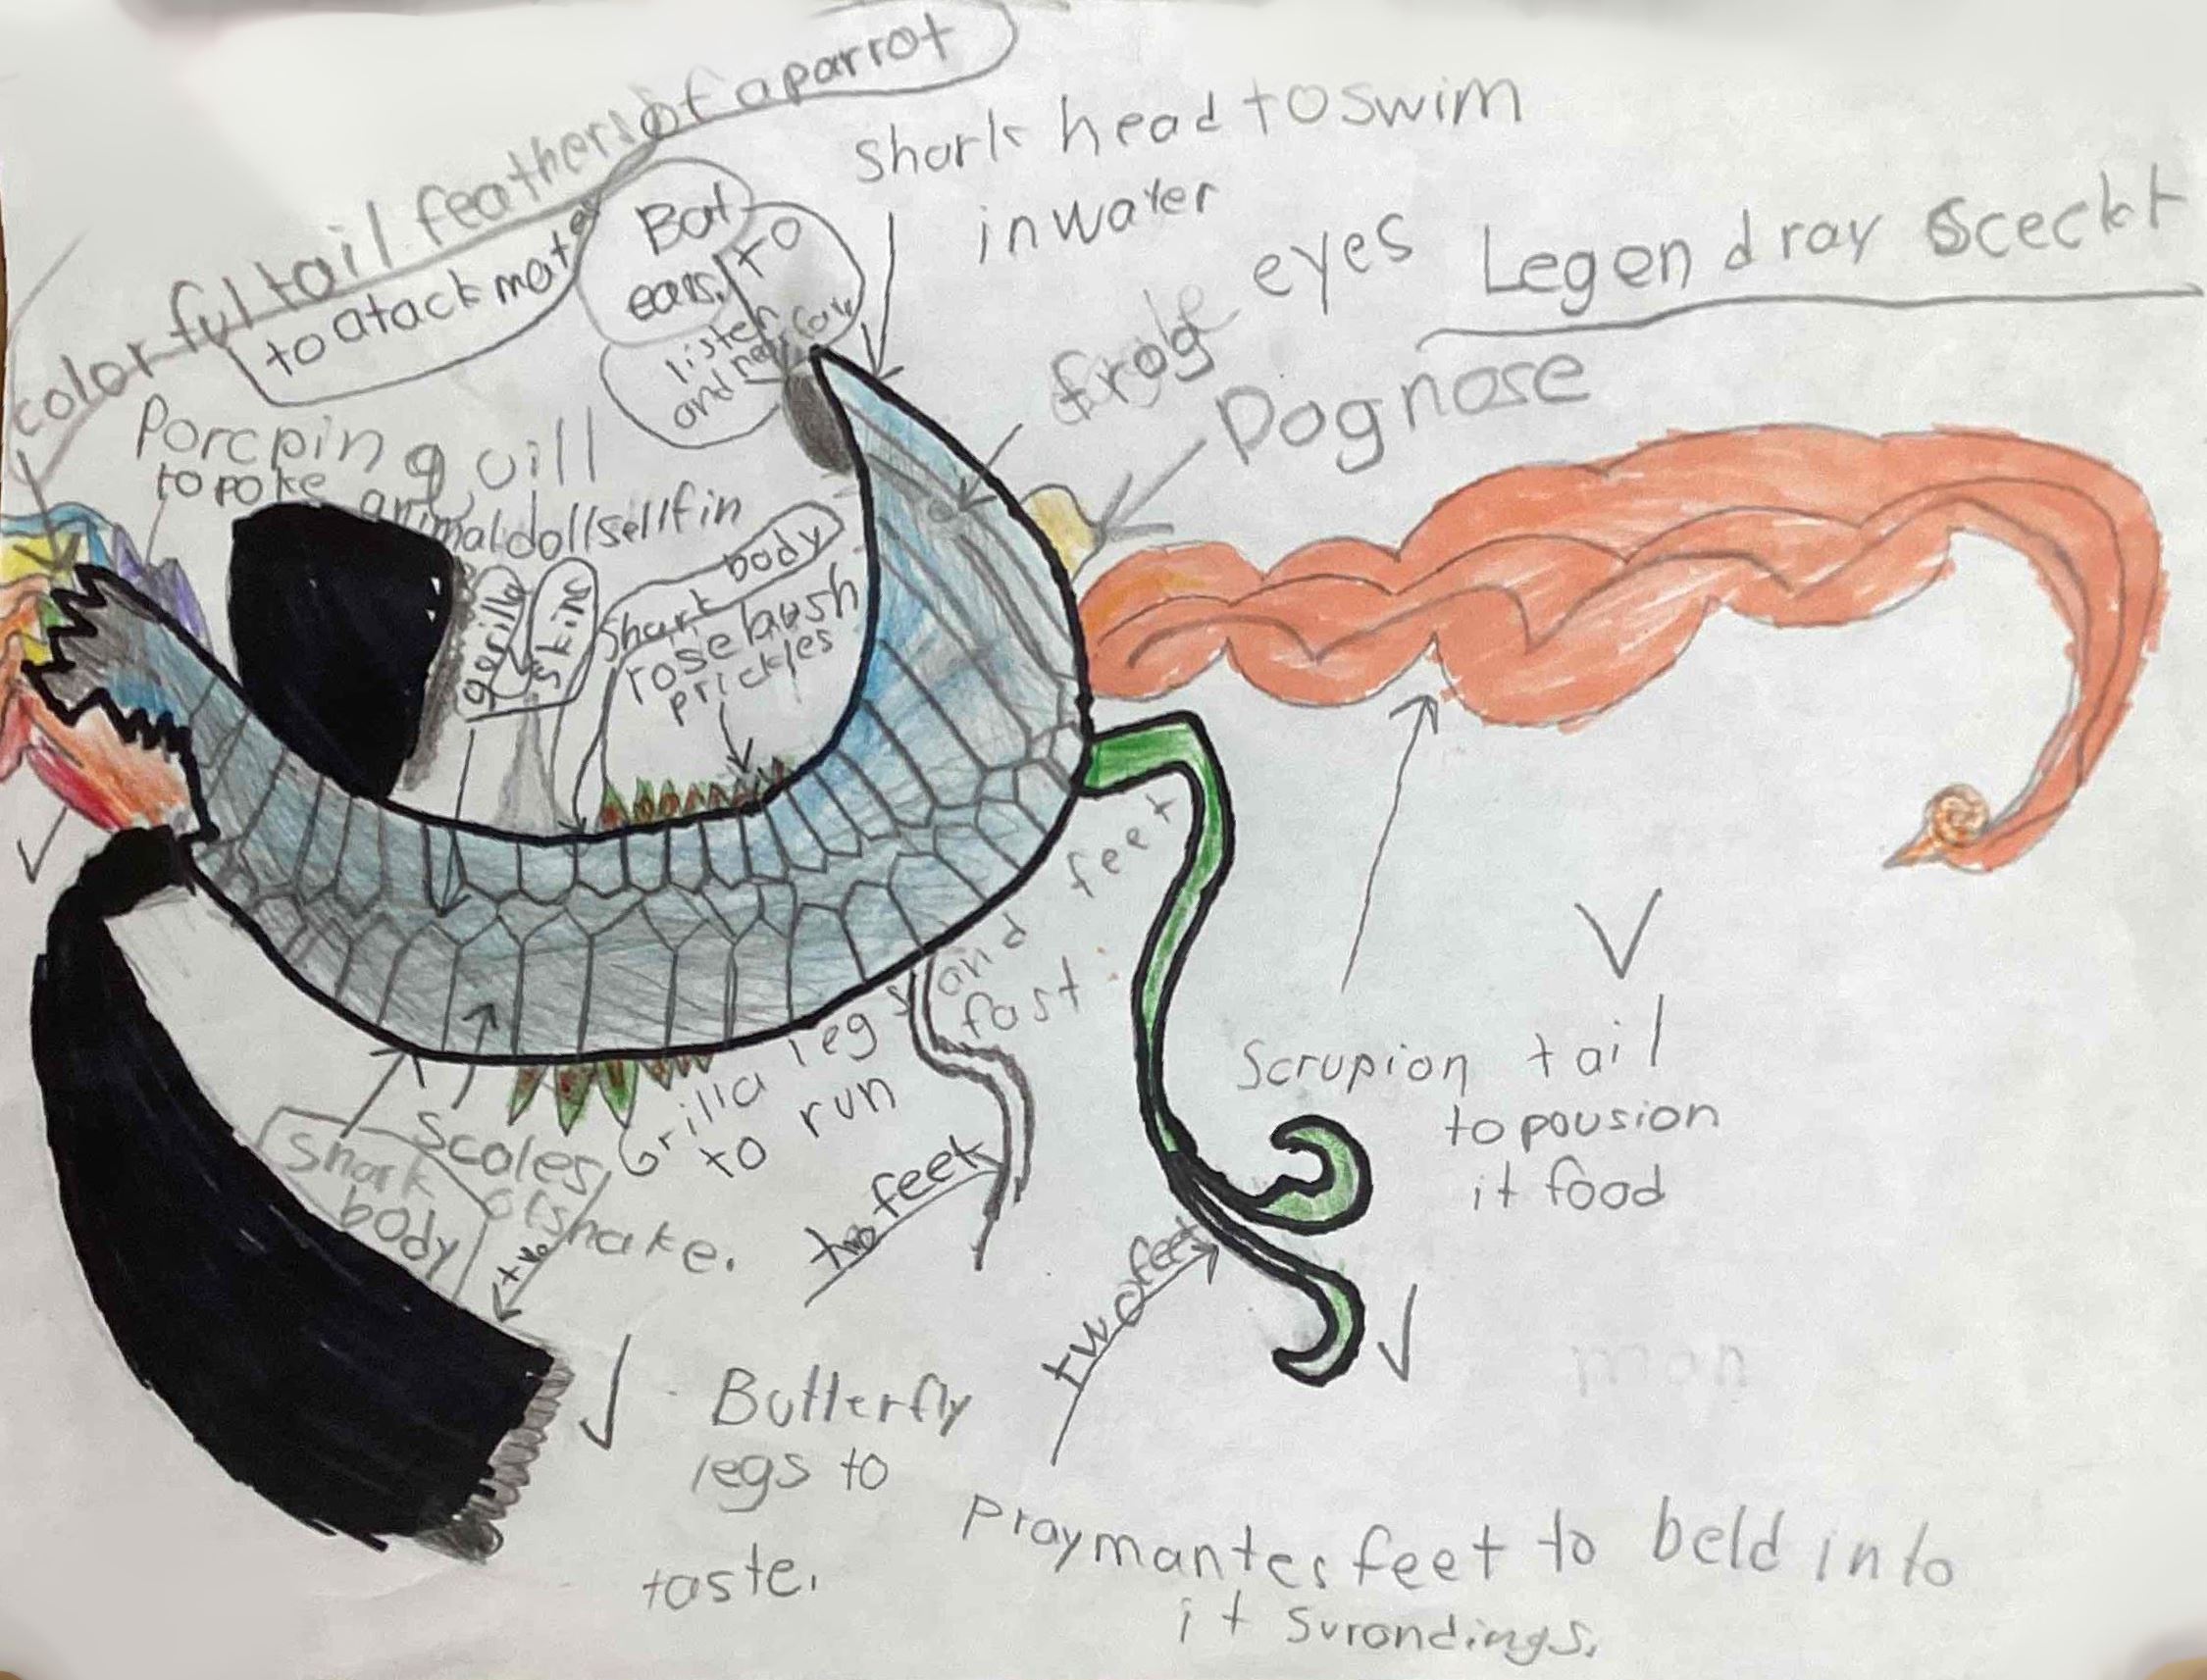 colorful tail feathers of a parrot
to atack mates
Bat
ears, to
listen
and
shark head to swim
in water
frog eyes
Legendray Sceckt
Dog nose
Porcpin quill
to poke
animal dollsellfin
gerilla
skin
Shark body
rose bush
prickles
Grilla legs and feet
to run fast.
Shark
body
scales
of snake.
two feet
two feet
Scrupion tail
to pousion
it food
Butterfly
legs to
taste.
Praymantes feet to beld into
it surondings.
man